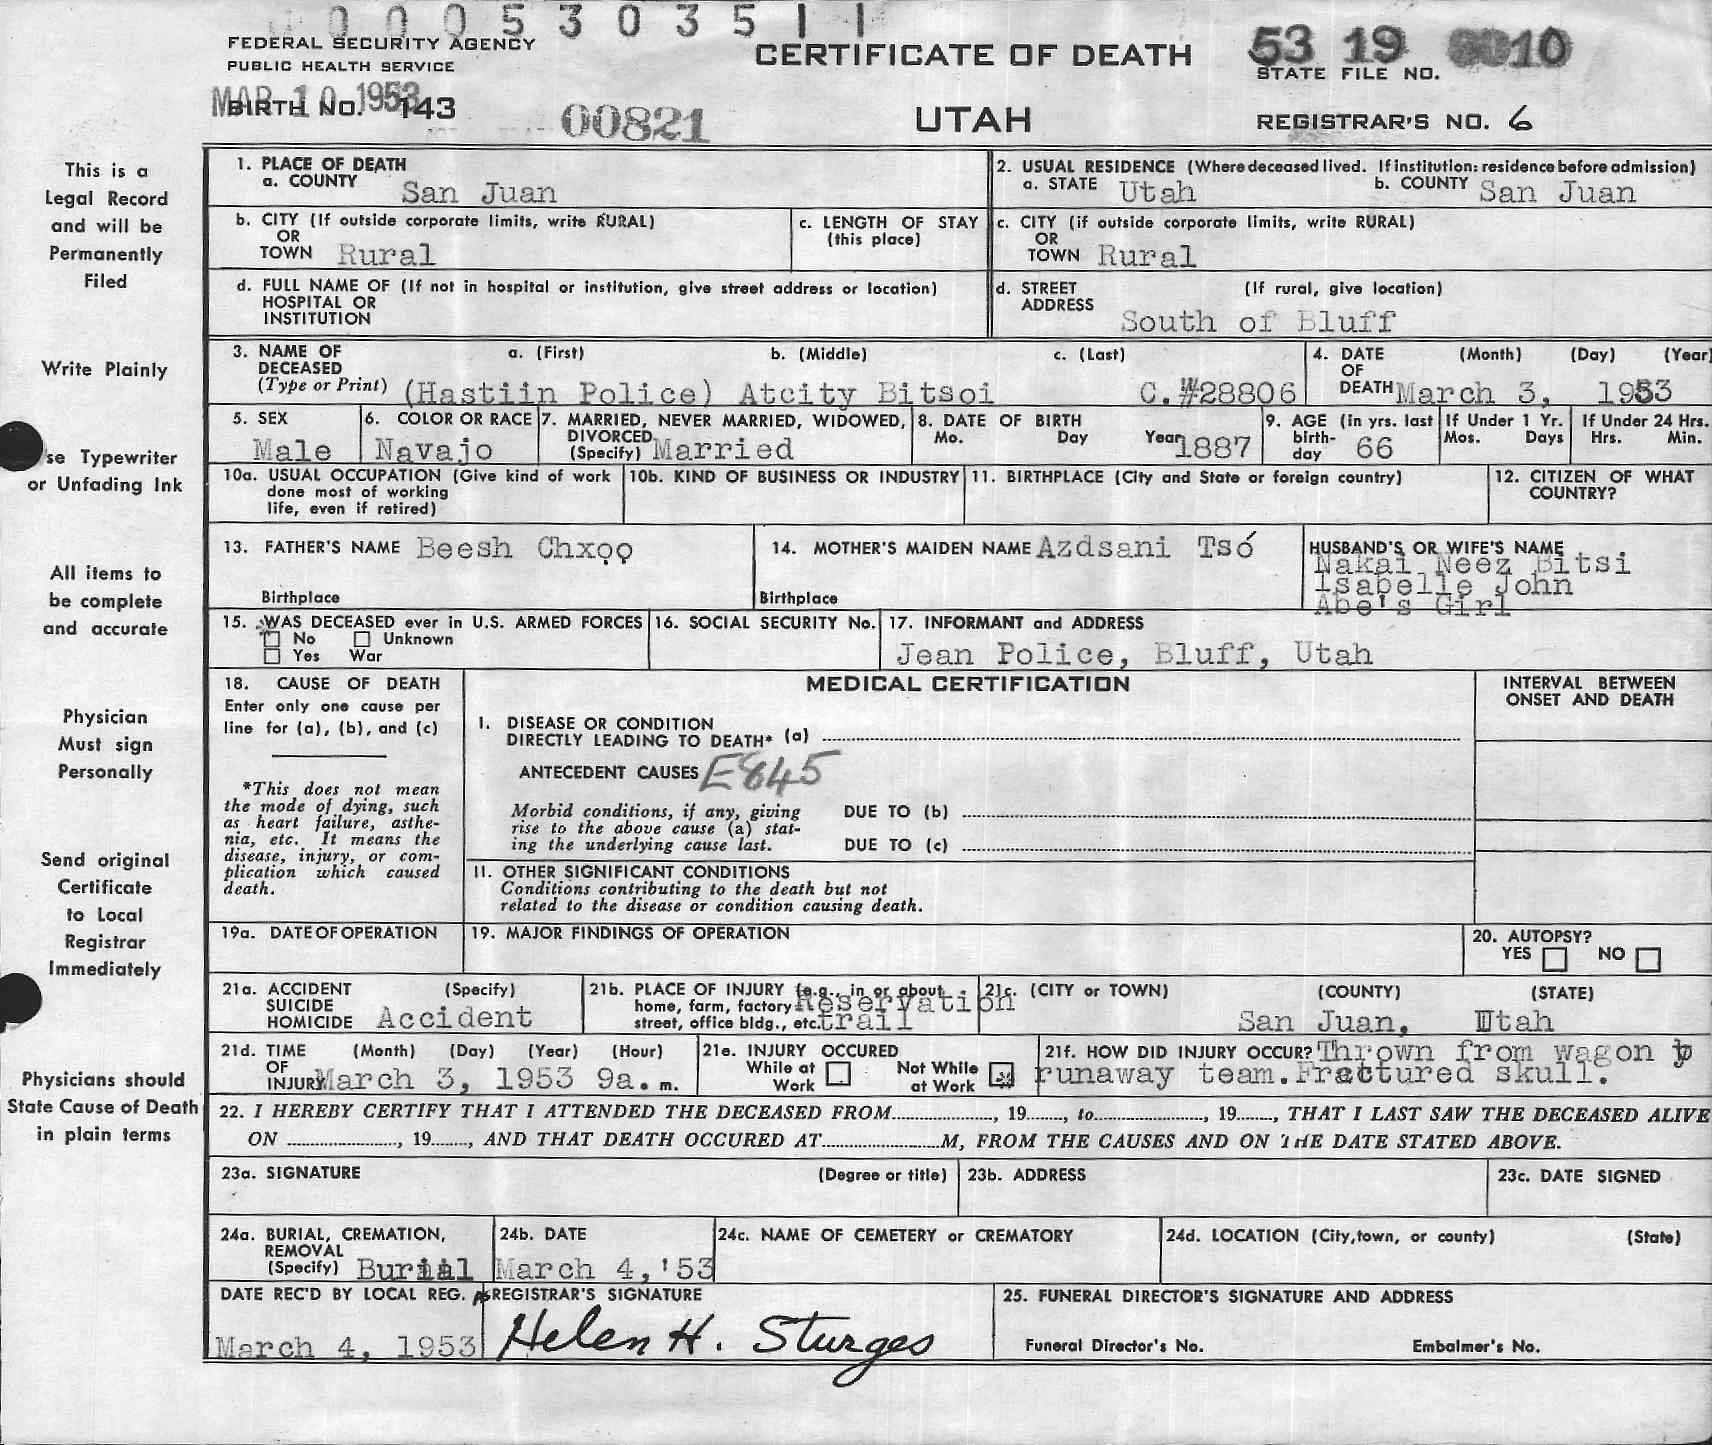 0 0 0 5 3 0 3 5 1 1
FEDERAL SECURITY AGENCY
PUBLIC HEALTH SERVICE
MAR 10 1953
BIRTH NO. 143
00821
CERTIFICATE OF DEATH
UTAH
53 19 0010
STATE FILE NO.
REGISTRAR'S NO. 6
This is a
Legal Record
and will be
Permanently
Filed
Write Plainly
se Typewriter
or Unfading Ink
All items to
be complete
and accurate
Physician
Must sign
Personally
Send original
Certificate
to Local
Registrar
Immediately
Physicians should
State Cause of Death
in plain terms
1. PLACE OF DEATH
a. COUNTY San Juan
2. USUAL RESIDENCE (Where deceased lived. If institution: residence before admission)
a. STATE Utah b. COUNTY San Juan
b. CITY (If outside corporate limits, write RURAL)
OR
TOWN Rural
c. LENGTH OF STAY
(this place)
c. CITY (if outside corporate limits, write RURAL)
OR
TOWN Rural
d. FULL NAME OF (If not in hospital or institution, give street address or location)
HOSPITAL OR
INSTITUTION
d. STREET (If rural, give location)
ADDRESS
South of Bluff
3. NAME OF a. (First) b. (Middle) c. (Last)
DECEASED
(Type or Print) (Hastiin Police) Atcity Bitsoi C.#28806
4. DATE (Month) (Day) (Year)
OF
DEATH March 3, 1953
5. SEX
Male
6. COLOR OR RACE
Navajo
7. MARRIED, NEVER MARRIED, WIDOWED,
DIVORCED
(Specify) Married
8. DATE OF BIRTH
Mo. Day Year 1887
9. AGE (in yrs. last
birth-
day 66
If Under 1 Yr.
Mos. Days
If Under 24 Hrs.
Hrs. Min.
10a. USUAL OCCUPATION (Give kind of work
done most of working
life, even if retired)
10b. KIND OF BUSINESS OR INDUSTRY
11. BIRTHPLACE (City and State or foreign country)
12. CITIZEN OF WHAT
COUNTRY?
13. FATHER'S NAME Beesh Chxǫǫ
Birthplace
14. MOTHER'S MAIDEN NAME Azdsani Tsó
Birthplace
HUSBAND'S OR WIFE'S NAME
Nakai Neez Bitsi
Isabelle John
Abe's Girl
15. WAS DECEASED ever in U.S. ARMED FORCES
No Unknown
Yes War
16. SOCIAL SECURITY No.
17. INFORMANT and ADDRESS
Jean Police, Bluff, Utah
18. CAUSE OF DEATH
Enter only one cause per
line for (a), (b), and (c)
*This does not mean
the mode of dying, such
as heart failure, asthe-
nia, etc. It means the
disease, injury, or com-
plication which caused
death.
MEDICAL CERTIFICATION
INTERVAL BETWEEN
ONSET AND DEATH
I. DISEASE OR CONDITION
DIRECTLY LEADING TO DEATH* (a)
ANTECEDENT CAUSES E845
Morbid conditions, if any, giving
rise to the above cause (a) stat-
ing the underlying cause last.
DUE TO (b)
DUE TO (c)
II. OTHER SIGNIFICANT CONDITIONS
Conditions contributing to the death but not
related to the disease or condition causing death.
19a. DATE OF OPERATION
19. MAJOR FINDINGS OF OPERATION
20. AUTOPSY?
YES NO
21a. ACCIDENT (Specify)
SUICIDE
HOMICIDE Accident
21b. PLACE OF INJURY (e.g., in or about
home, farm, factory Reservation
street, office bldg., etc. trail
21c. (CITY or TOWN) (COUNTY) (STATE)
San Juan, Utah
21d. TIME (Month) (Day) (Year) (Hour)
OF
INJURY March 3, 1953 9a. m.
21e. INJURY OCCURED
While at Not While
Work at Work
21f. HOW DID INJURY OCCUR? Thrown from wagon b
runaway team. Fractured skull.
22. I HEREBY CERTIFY THAT I ATTENDED THE DECEASED FROM , 19 , to , 19 , THAT I LAST SAW THE DECEASED ALIVE
ON , 19 , AND THAT DEATH OCCURED AT M, FROM THE CAUSES AND ON THE DATE STATED ABOVE.
23a. SIGNATURE (Degree or title)
23b. ADDRESS
23c. DATE SIGNED
24a. BURIAL, CREMATION,
REMOVAL
(Specify) Burial
24b. DATE
March 4,'53
24c. NAME OF CEMETERY or CREMATORY
24d. LOCATION (City, town, or county) (State)
DATE REC'D BY LOCAL REG.
March 4, 1953
REGISTRAR'S SIGNATURE
Helen H. Sturges
25. FUNERAL DIRECTOR'S SIGNATURE AND ADDRESS
Funeral Director's No. Embalmer's No.